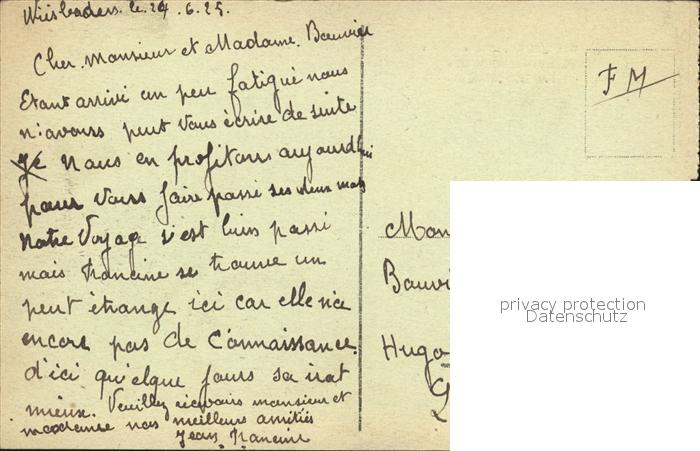 Wiesbaden le 24.6.25.
Cher Monsieur et Madame. Bauvier
Etant arrivé un peu fatigué nous
n'avons peut vous écrire de suite
Je Nous en profitons aujourd'hui
pour vous faire passé ses deux mots
Notre Voyage s'est bien passé
mais Francine se trouve un
peut étrange ici car elle n'a
encore pas de Connaissance.
d'ici qu'elque jours sa irat
mieux. Veuillez recevoir monsieur et
madame nos meilleurs amitiés
Jean Francine
FM
Mon
Bauvi
Hugo
privacy protection
Datenschutz